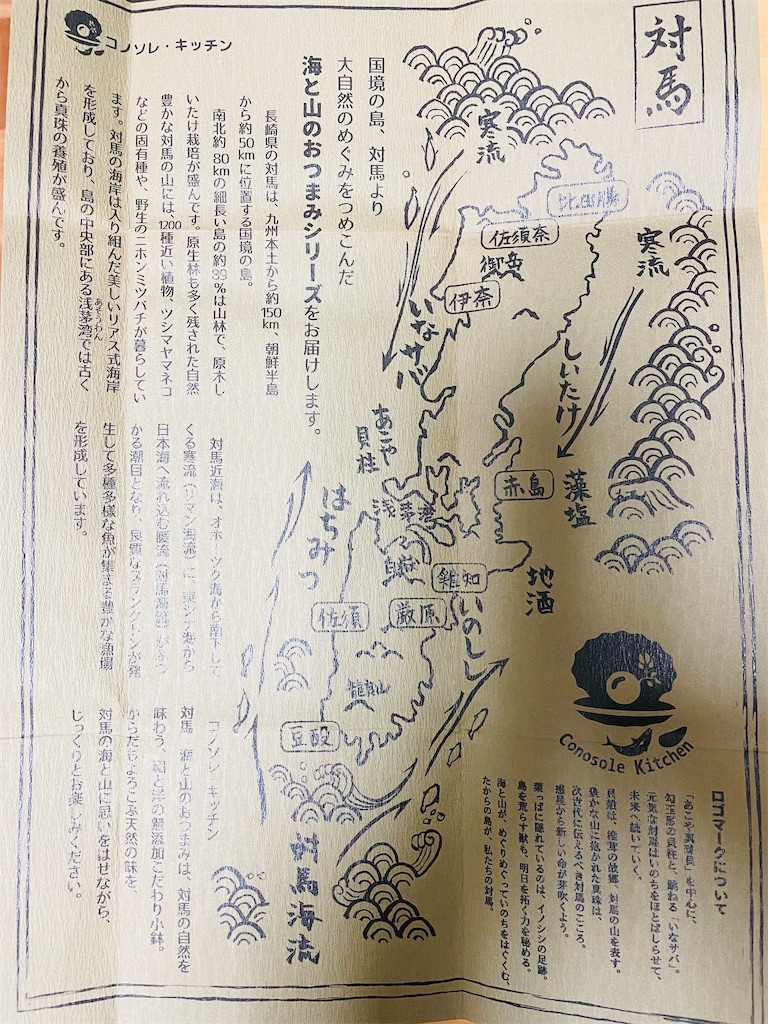 対馬
コノソレ・キッチン
国境の島、対馬より
大自然のめぐみをつめこんだ
海と山のおつまみシリーズをお届けします。
長崎県の対馬は、九州本土から約150km、朝鮮半島
から約50kmに位置する国境の島。
南北約80kmの細長い島の約89%は山林で、原木し
いたけ栽培が盛んです。原生林も多く残された自然
豊かな対馬の山には、1200種近い植物、ツシマヤマネコ
などの固有種や、野生のニホンミツバチが暮らしてい
ます。対馬の海岸は入り組んだ美しいリアス式海岸
を形成しており、島の中央部にある浅茅湾では古く
あそうわん
から真珠の養殖が盛んです。
対馬近海は、オホーツク海から南下して
くる寒流（リマン海流）に、東シナ海から
日本海へ流れ込む暖流（対馬海流）がぶつ
かる潮目となり、良質なプランクトンが発
生して多種多様な魚が集まる豊かな漁場
を形成しています。
コノソレ・キッチン
対馬 海と山のおつまみは、対馬の自然を
味わう、和と洋の無添加こだわり小鉢。
からだもよろこぶ天然の味を、
対馬の海と山に思いをはせながら、
じっくりとお楽しみください。
寒流
寒流
比田勝
佐須奈
御岳
伊奈
いなサバ
しいたけ
あこや
貝柱
赤島
藻塩
浅茅湾
白嶽
はちみつ
雞知
地酒
佐須
厳原
いのしし
龍良山
豆酘
対馬海流
Conosole Kitchen
ロゴマークについて
「あこや真珠貝」を中心に、
勾玉形の貝柱と、跳ねる「いなサバ」。
元気な対馬はいのちをほとばしらせて、
未来へ続いていく。
貝殻は、椎茸の故郷、対馬の山を表す。
豊かな山に抱かれた真珠は、
次世代に伝えるべき対馬のこころ。
惑星から新しい命が芽吹くよう。
葉っぱに隠れているのは、イノシシの足跡。
島を荒らす獣も、明日を拓く力を秘める。
海と山が、めぐりめぐっていのちをはぐくむ、
たからの島が、私たちの対馬。